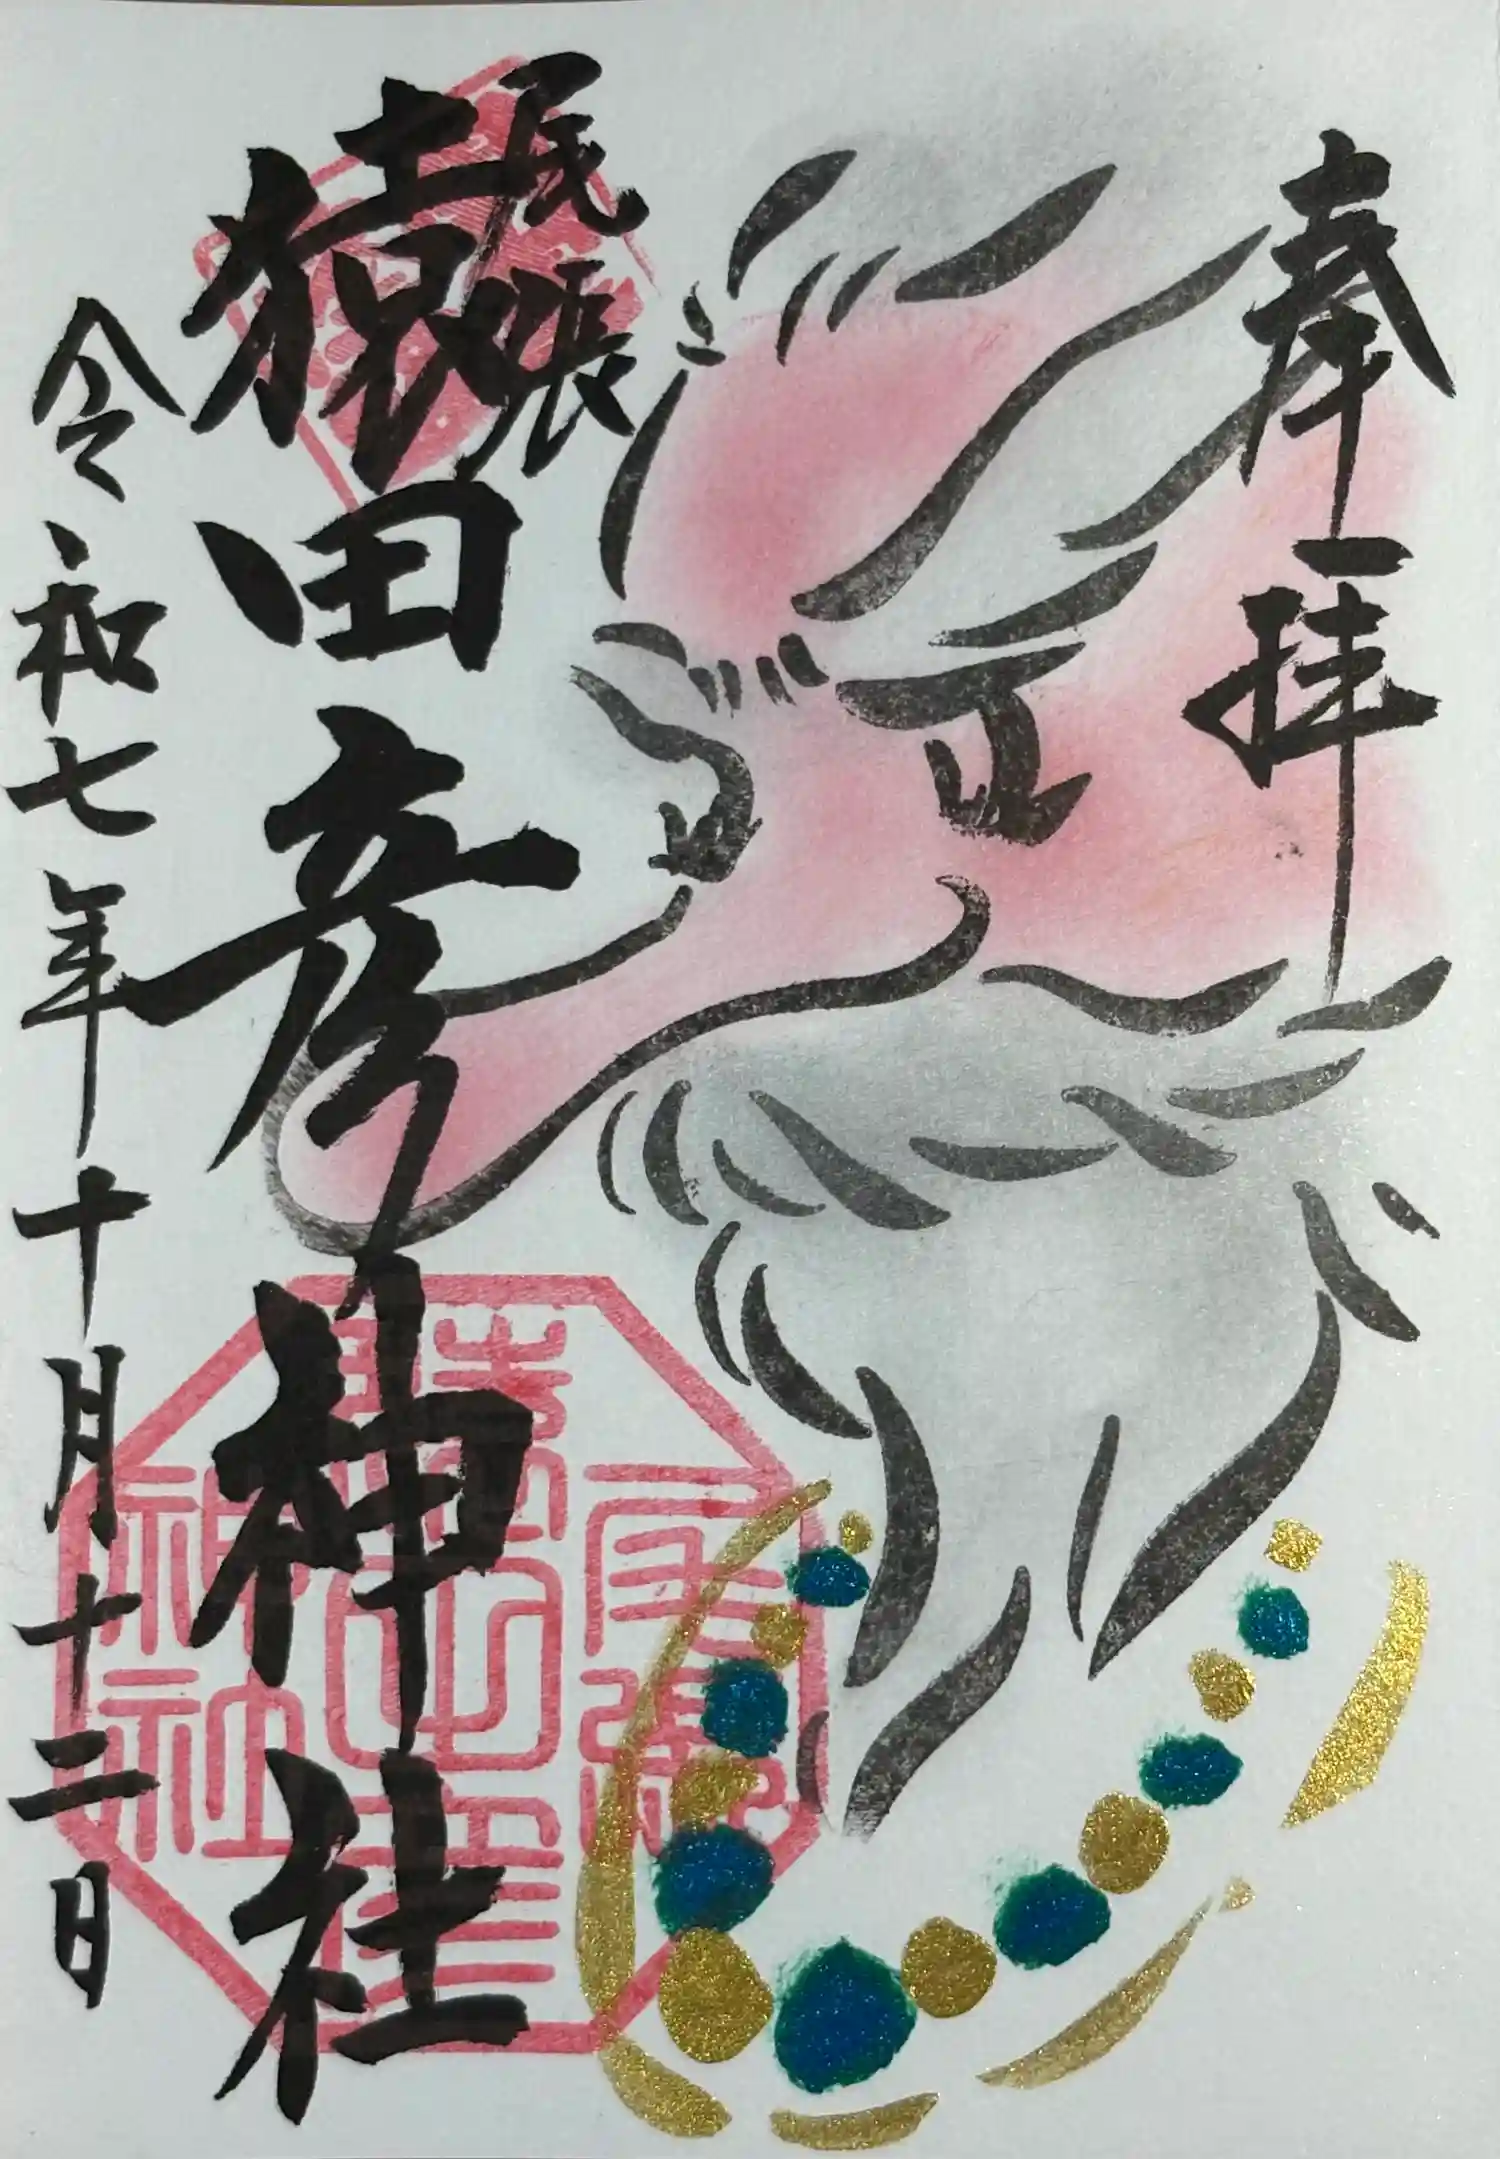 奉拝
尾張
猿田彦神社
令和七年十月十二日
尾張
神社